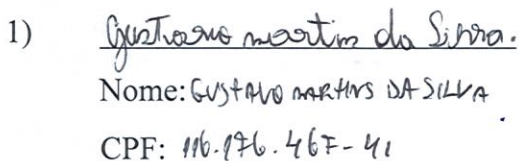 1) Gustavo martins da Silva.
Nome: GUSTAVO MARTINS DA SILVA
CPF: 116.176.467-41